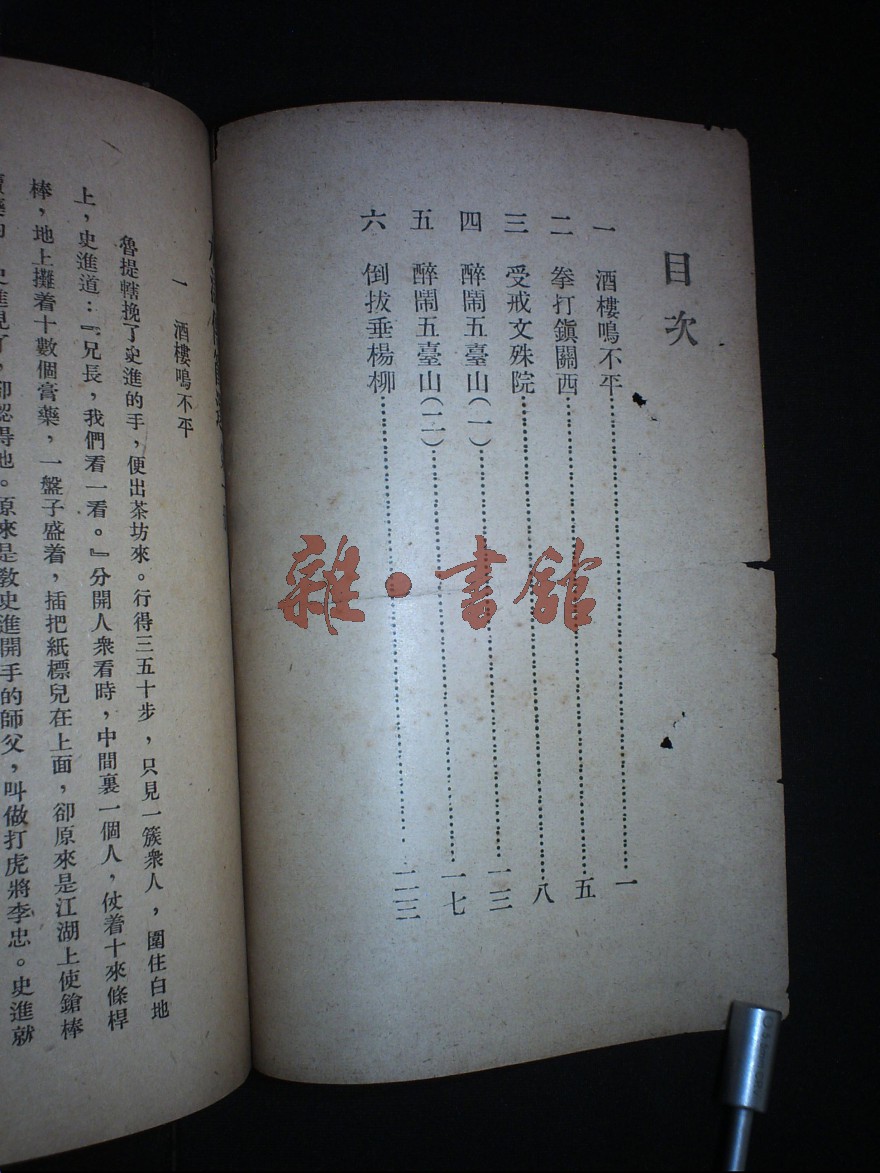 目次
一 酒樓鳴不平……一
二 拳打鎭關西……五
三 受戒文殊院……八
四 醉鬧五臺山(一)……一三
五 醉鬧五臺山(二)……一七
六 倒拔垂楊柳……二三
雜·書館
一 酒樓鳴不平
魯提轄挽了史進的手，便出茶坊來。行得三五十步，只見一簇衆人，圍住白地
上，史進道：『兄長，我們看一看。』分開人衆看時，中間裏一個人，仗着十來條桿
棒，地上攤着十數個膏藥，一盤子盛着，插把紙標兒在上面，卻原來是江湖上使鎗棒
史進見了，卻認得他。原來是敎史進開手的師父，叫做打虎將李忠。史進就